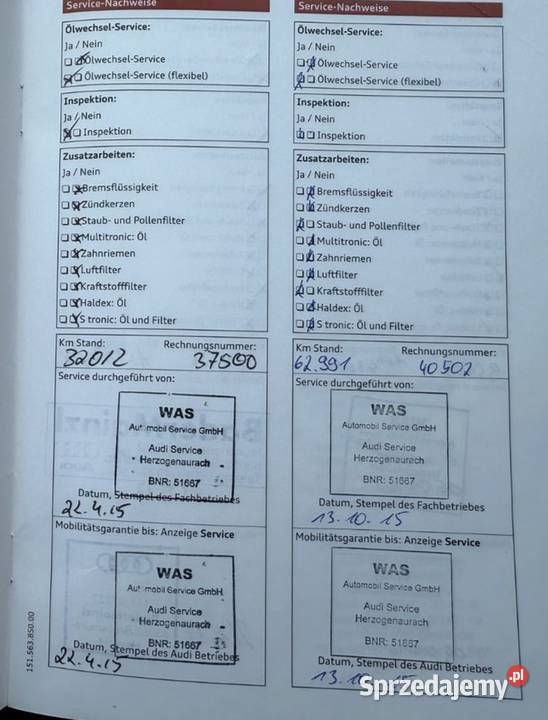 Service-Nachweise
Ölwechsel-Service:
Ja / Nein
Ölwechsel-Service
Ölwechsel-Service (flexibel)
Inspektion:
Ja / Nein
Inspektion
Zusatzarbeiten:
Ja / Nein
Bremsflüssigkeit
Zündkerzen
Staub- und Pollenfilter
Multitronic: Öl
Zahnriemen
Luftfilter
Kraftstofffilter
Haldex: Öl
S tronic: Öl und Filter
Km Stand: Rechnungsnummer:
32012 37500
Service durchgeführt von:
WAS
Automobil Service GmbH
Audi Service
Herzogenaurach
BNR: 51667
Datum, Stempel des Fachbetriebes
22.4.15
Mobilitätsgarantie bis: Anzeige Service
WAS
Automobil Service GmbH
Audi Service
Herzogenaurach
BNR: 51667
Datum, Stempel des Audi Betriebes
22.4.15
151.563.850.00
Service-Nachweise
Ölwechsel-Service:
Ja / Nein
Ölwechsel-Service
Ölwechsel-Service (flexibel)
Inspektion:
Ja / Nein
Inspektion
Zusatzarbeiten:
Ja / Nein
Bremsflüssigkeit
Zündkerzen
Staub- und Pollenfilter
Multitronic: Öl
Zahnriemen
Luftfilter
Kraftstofffilter
Haldex: Öl
S tronic: Öl und Filter
Km Stand: Rechnungsnummer:
62.991 40502
Service durchgeführt von:
WAS
Automobil Service GmbH
Audi Service
Herzogenaurach
BNR: 51667
Datum, Stempel des Fachbetriebes
13.10.15
Mobilitätsgarantie bis: Anzeige Service
WAS
Automobil Service GmbH
Audi Service
Herzogenaurach
BNR: 51667
Datum, Stempel des Audi Betriebes
13.10.15
Sprzedajemy.pl